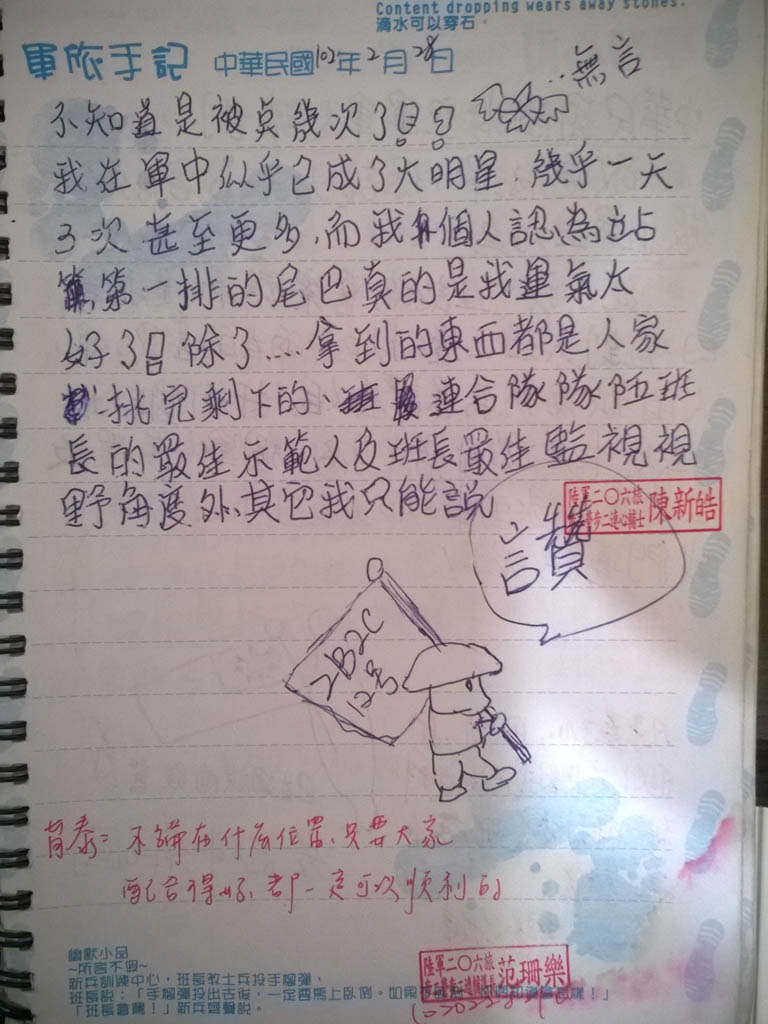 Content dropping wears away stones.
滴水可以穿石。
軍旅手記 中華民國102年2月28日
...無言
不知道是被點幾次了
我在軍中似乎已成了大明星,幾乎一天
3次甚至更多,而我個人認為站
第一排的尾巴真的是我運氣太
好了 除了....拿到的東西都是人家
挑完剩下的、連合隊隊伍班
長的最佳示範人及班長最佳監視視
野角度外,其它我只能說
讚
陸軍二〇六旅
步二連心輔士 陳新皓
2B2C
12号
不論在什麼位置,只要大家
配合得好,都一定可以順利的
幽默小品
~所言不假~
新兵訓練中心,班長教士兵投手榴彈,
班長說:「手榴彈投出去後,一定要馬上臥倒。如果
「班長會罵!」新兵盛聲說。
陸軍二〇六旅
范珊樂